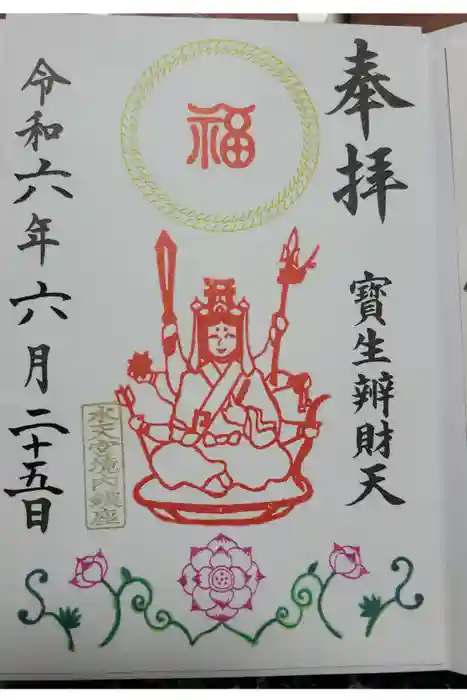 奉拝
寶生辨財天
福
水天宮境内鎮座
令和六年六月二十五日